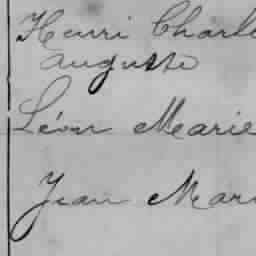 Henri Charle
Auguste
Léon Marie
Jean Mari